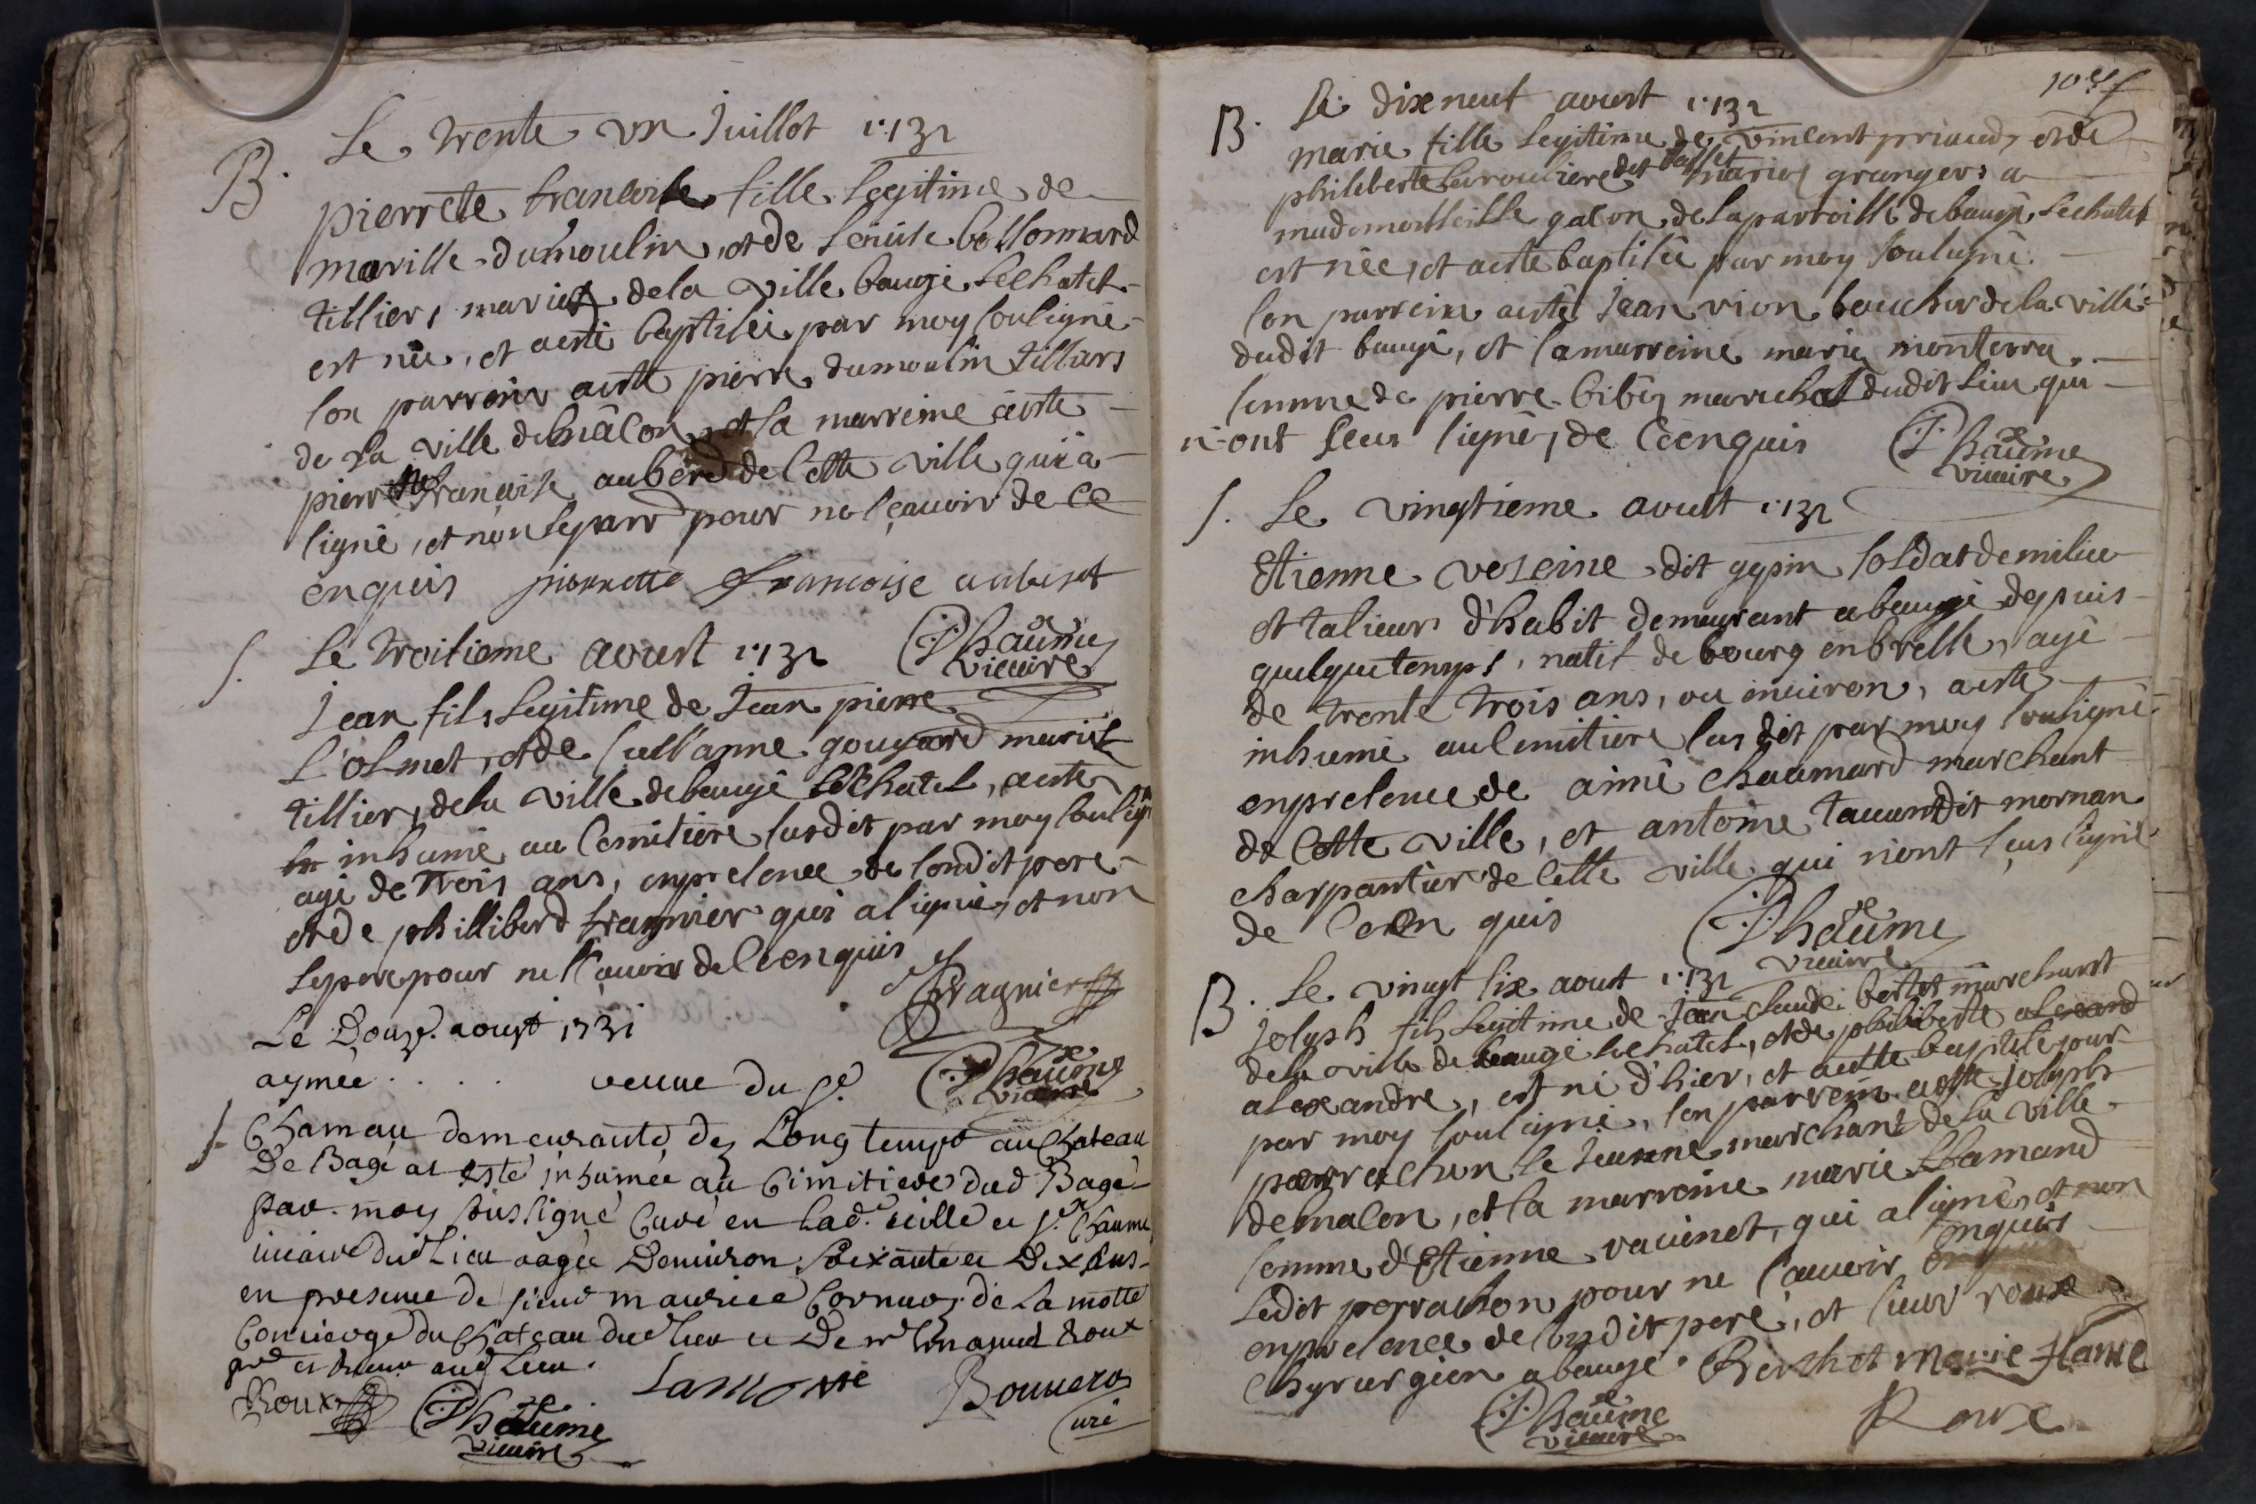 B. Le trente un juillot 1731
pierrete francoise fille legitime de
maville dumoulin, et de lenise bollonnard
tilliers mariez de la ville baugé le chatel
est née, et a esté baptisée par moy soussigné
son parrein a esté pierre dumoulin tilliers
de la ville de mâcon, et la marreine a esté
pierrette francoise auberd de cette ville qui a
signé, et non le parr. pour ne sçavoir de ce
enquis pierrette francoise auberet
P. Chaume
vicaire
S. Le troisieme aoust 1731
Jean fils legitime de Jean pierre
L'olmet, et de susanne gouyard mariés
tillier, de la ville de baugé le chatel, a esté
inhumé au cemitiere susdit par moy soussigné
agé de trois ans, en presence de sondit pere
et de phillibert fragnier qui a signé, et non
le pere pour ne sçavoir de ce enquis
Fragnier
P. Chaume
vicaire
Le Douze. aoust 1731
aymée . . . . veuve du Sr.
S. Chaman demeurante dez Long temps au Chateau
De Bagé at esté inhumée au Cimitiere dud Bagé
par moy sousigné Curé en lad. ville et Sr. Chaume
vicaire dud Lieu aagée Denviron soixante et Dix ans
en presence de sieur maurice Cornuo, de La motte
Concierge du Chateau dud lieu et De Mr Emanuel Roux
aud Lieu.
Roux
P. Chaume
vicaire
Lamotte
Bouvero
Curé
1031
B. Le dix neuf aoust 1731
marie fille legitime de vincent priaud, et de
philiberte Lavrouliere dit mariez grangers a
mademoiselle gacon de la parroisse de baugé le chatel
est née, et a esté baptisée par moy soussigné.
son parrein a esté jean vion boucher de la ville
dudit baugé, et la marreine marie monterra
femme de pierre bibet marechal dudit lieu qui
n'ont sceu signé, de ce enquis
P. Chaume
vicaire
S. Le vingtieme aoust 1731
Etienne veseine dit gypin soldat de milice
et talieur d'habit demeurant a baugé depuis
quelque temps, natif de bourg en bresse, agé
de trente trois ans, ou environ, a esté
inhumé au cemitiere susdit par moy soussigné
en presence de aimé chaumard marchant
de cette ville, et antoine tavandit mornan
charpantier de cette ville qui n'ont sceu signé
de ce enquis
P. Chaume
vicaire
B. Le vingt six aoust 1731
Joseph fils legitime de Jean claude bertet marchant
de la ville de baugé le chatel, et de philiberte alexand
alexandre, est né d'hier, et a esté baptisé
par moy soussigné, son parrein a esté Joseph
perrachon le Jeunne marchant de la ville
de macon, et la marreine marie flamand
femme d'Etienne vavinet, qui a signé, et non
ledit perrachon pour ne sçavoir enquis
en presence de sondit pere, et sieur roux
chyrurgien a baugé. Berthet marie flame
P. Chaume
vicaire
Roux